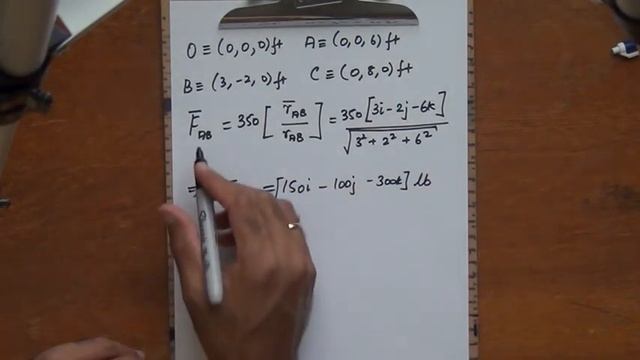 O ≡ (0,0,0) ft A ≡ (0,0,6) ft
B ≡ (3,-2,0) ft C ≡ (0,8,0) ft
F̄AB = 350 [ r̄AB / rAB ] = 350 [3i - 2j - 6k] / √(3² + 2² + 6²)
= [150i - 100j - 300k] lb